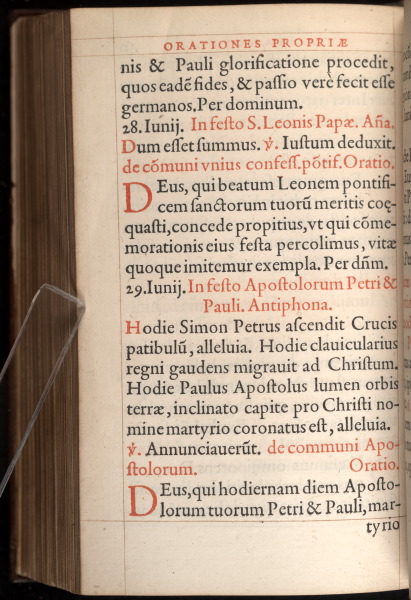 ORATIONES PROPRIÆ
nis & Pauli glorificatione procedit,
quos eadẽ fides, & paſſio verè fecit eſſe
germanos. Per dominum.
28. Iunij. In feſto S. Leonis Papæ. Aña.
Dum eſſet ſummus. ℣. Iuſtum deduxit.
de cõmuni vnius confeſſ. põtif. Oratio.
DEus, qui beatum Leonem pontifi-
cem ſanctorum tuorũ meritis coę-
quaſti, concede propitius, vt qui cõme-
morationis eius feſta percolimus, vitæ
quoque imitemur exempla. Per dñm.
29. Iunij. In feſto Apoſtolorum Petri &
Pauli. Antiphona.
Hodie Simon Petrus aſcendit Crucis
patibulũ, alleluia. Hodie clauicularius
regni gaudens migrauit ad Chriſtum.
Hodie Paulus Apoſtolus lumen orbis
terræ, inclinato capite pro Chriſti no-
mine martyrio coronatus eſt, alleluia.
℣. Annunciauerũt. de communi Apo-
ſtolorum. Oratio.
DEus, qui hodiernam diem Apoſto-
lorum tuorum Petri & Pauli, mar-
tyrio